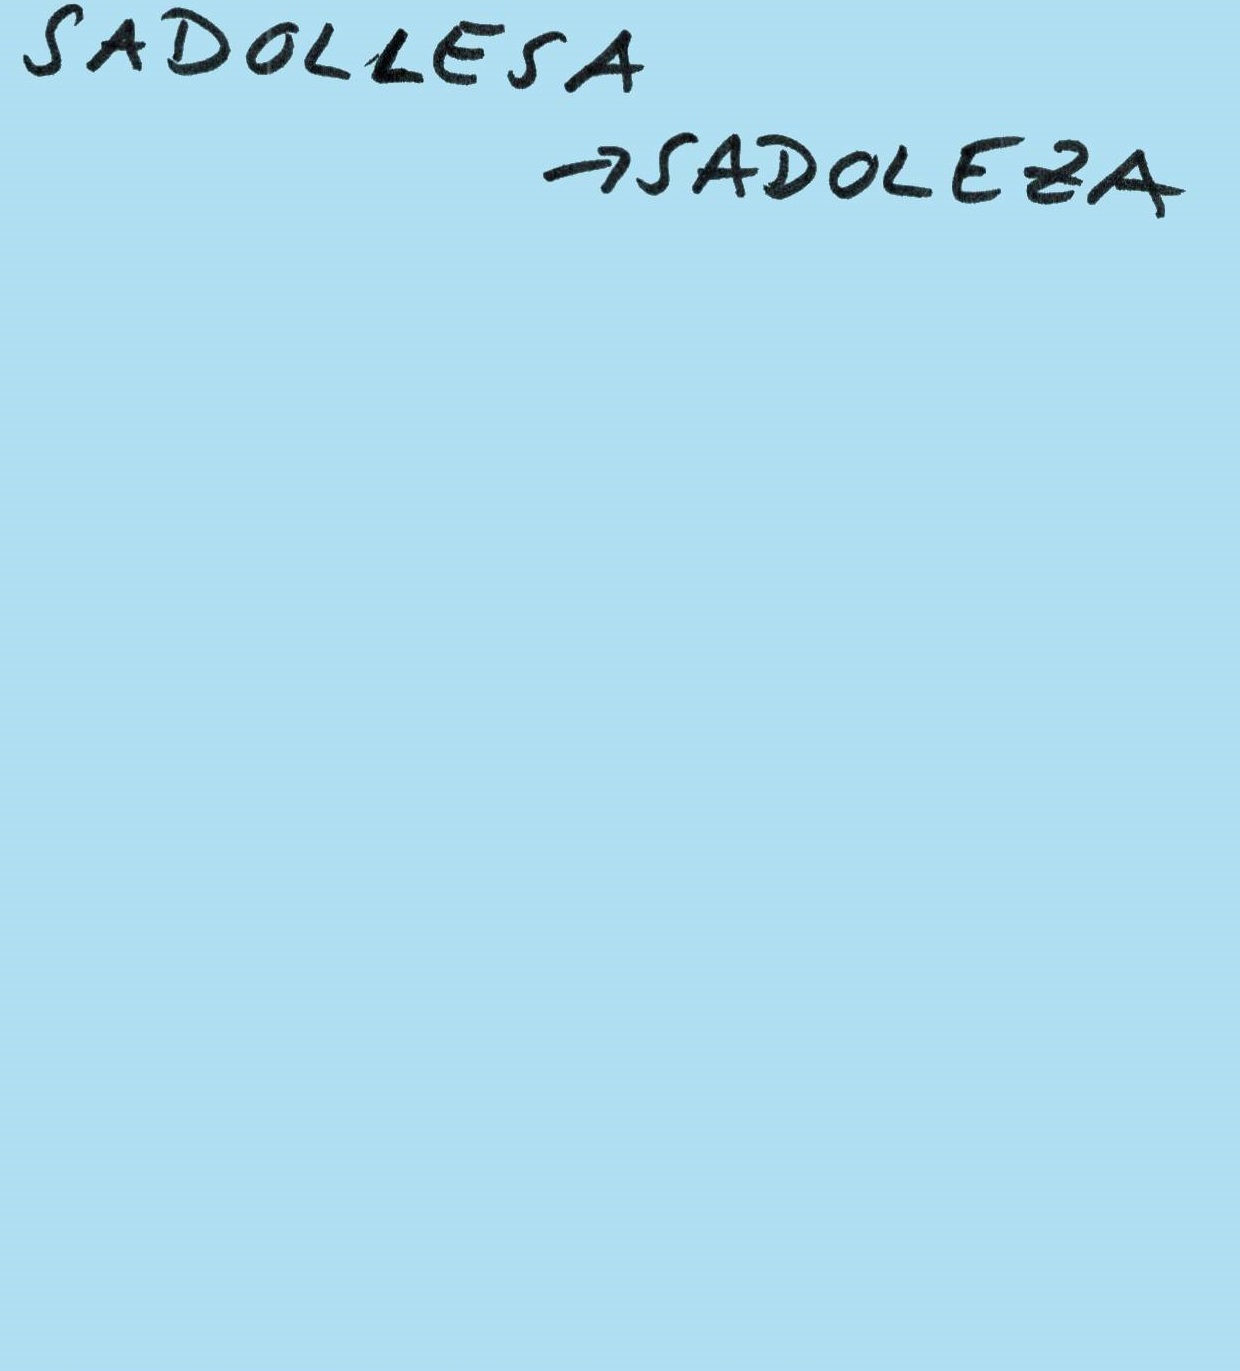 SADOLLESA
→SADOLEZA